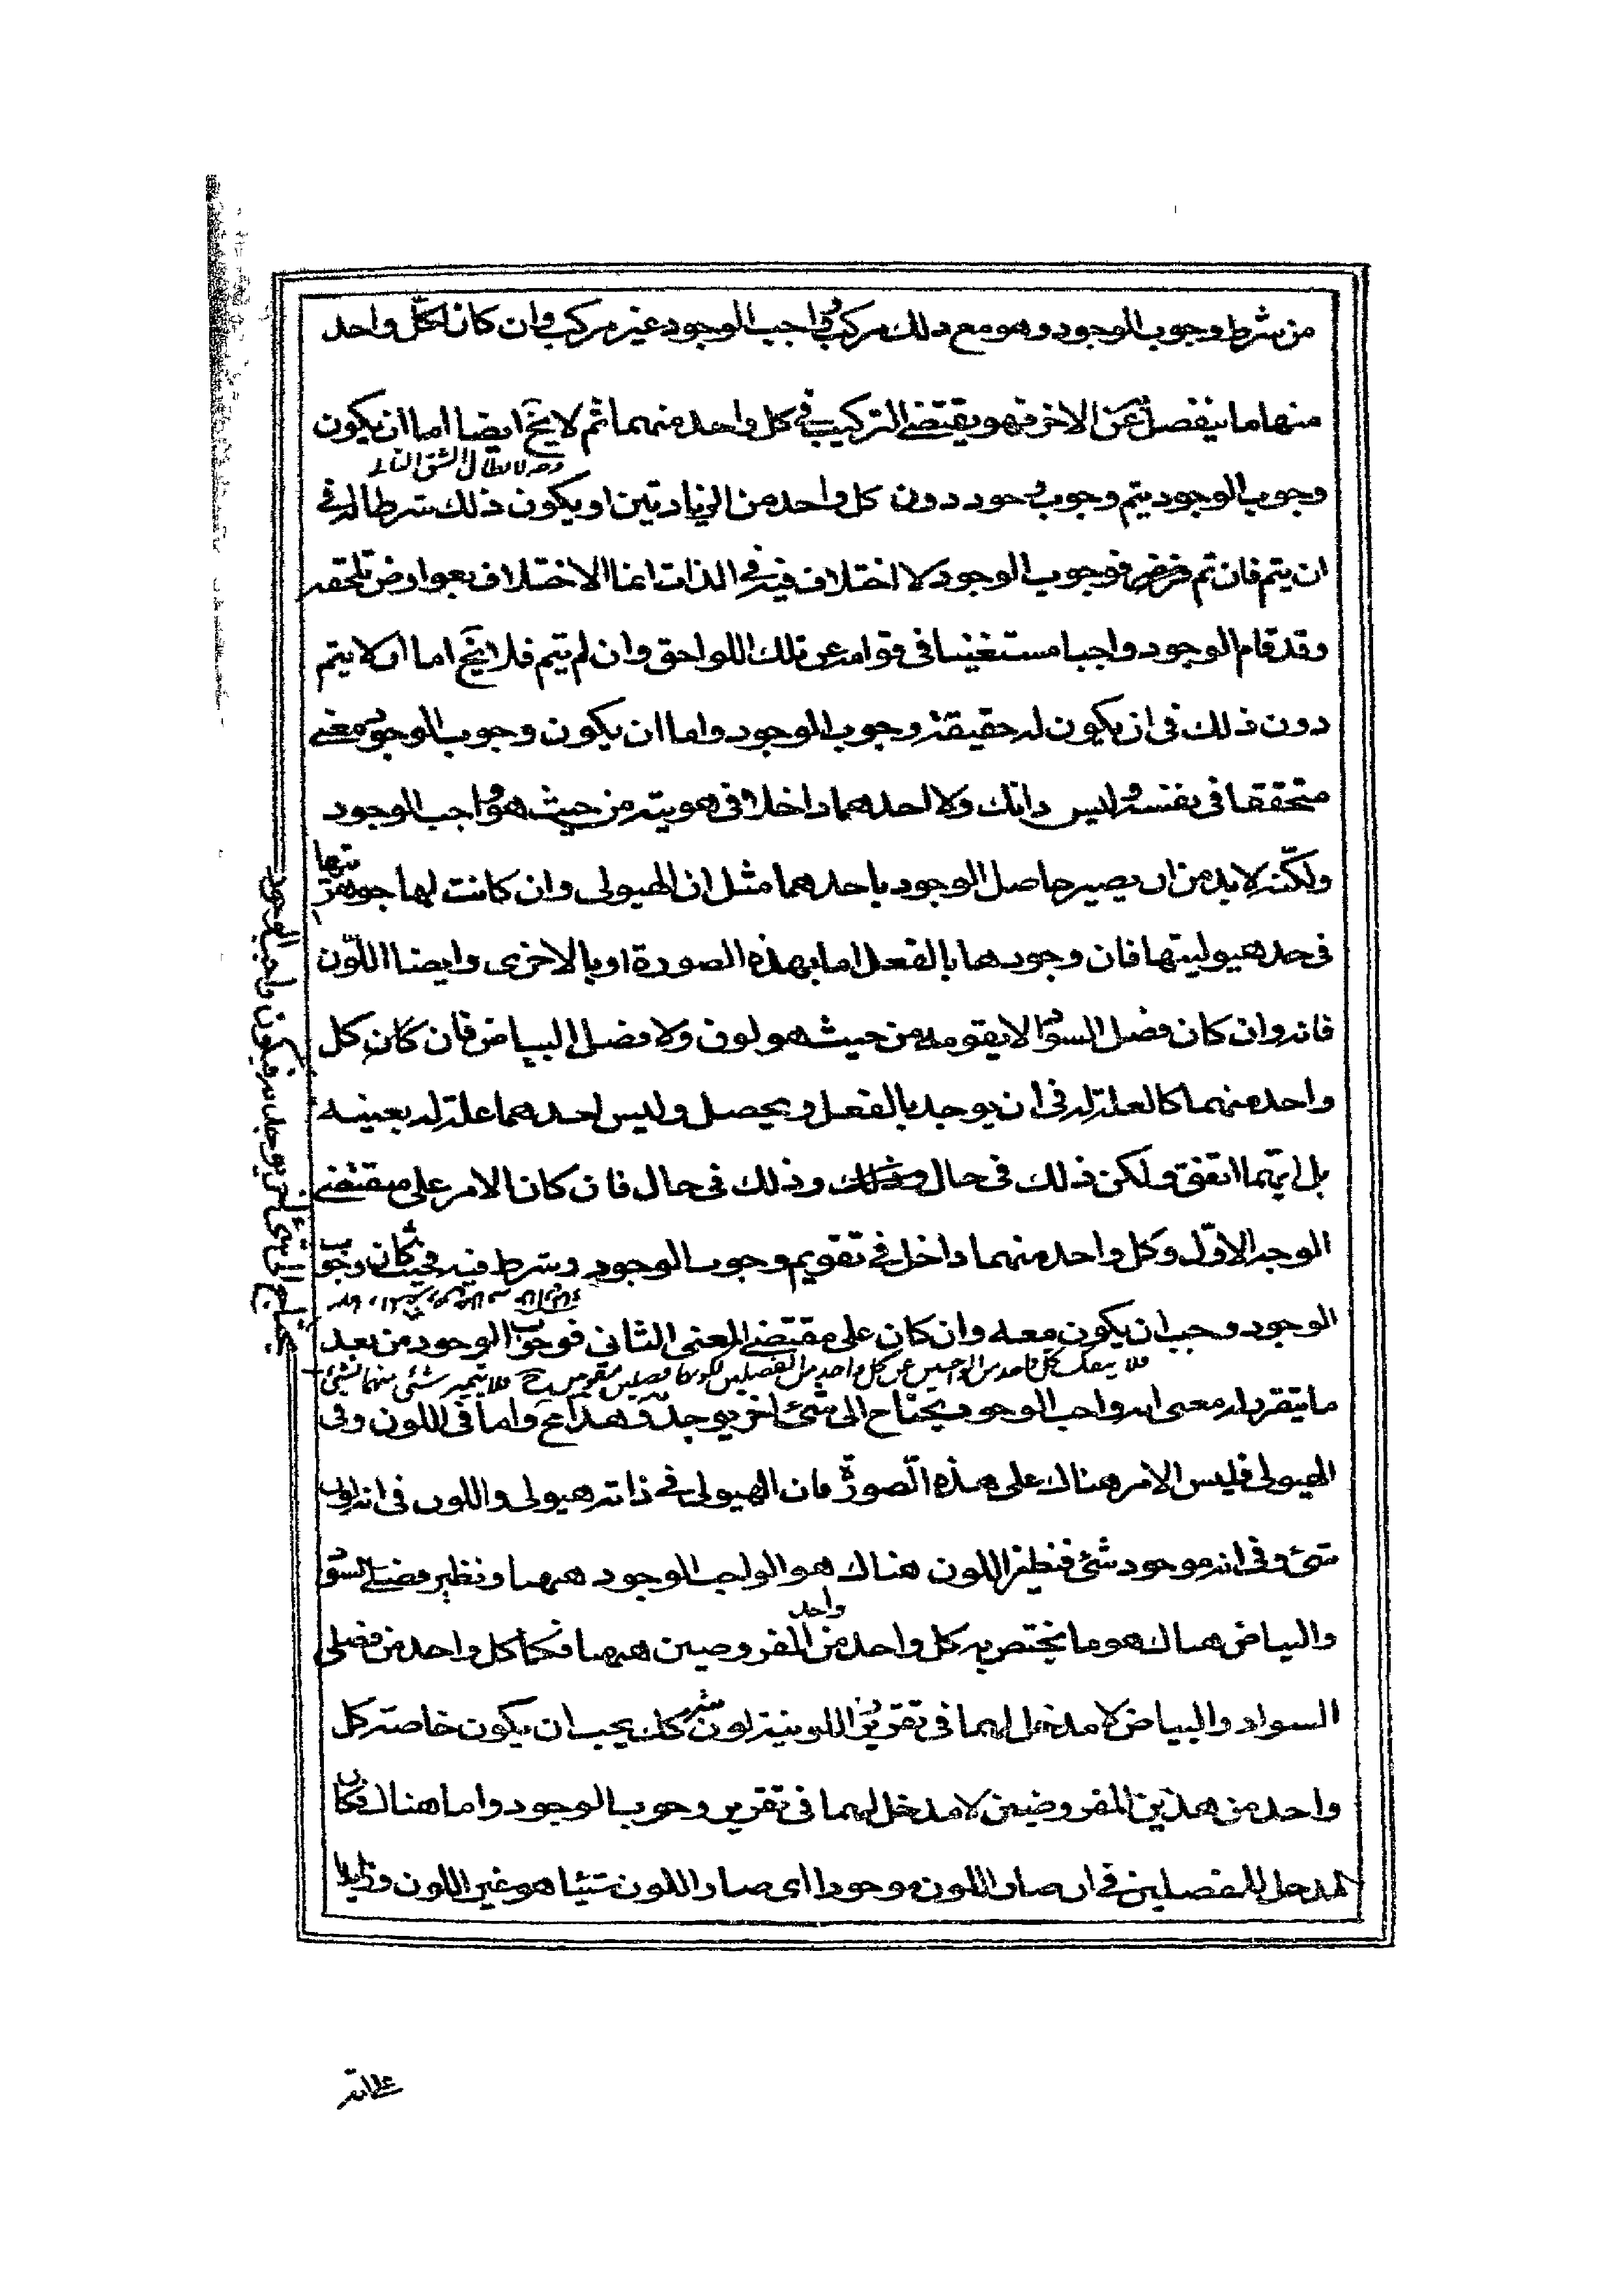 من شرط وجوب الوجود وهو مع ذلك مركب وواجب الوجود غير مركب وان كان لكل واحد
منها ما ينفصل عن الاخر فهو يقتضي التركيب في كل واحد منهما ثم لا يخ ايضا اما ان يكون
وجوب الوجود يتم وجوب وجود دون كل واحد من الزيادتين او يكون ذلك شرطا له في
ان يتم فان تم فوجوب الوجود لا اختلاف فيه في الذات انما الاختلاف بعوارض تلحقه
وقد قام الوجود واجبا مستغنيا في قوامه عن تلك اللواحق وان لم يتم فلا يخ اما ان لا يتم
دون ذلك في ان يكون له حقيقة وجوب الوجود واما ان يكون وجوب الوجود معنى
متحققا في نفسه وليس ذانك ولا احدهما داخلا في هويته من حيث هو واجب الوجود
ولكنه لا بد من ان يصير حاصل الوجود باحدهما مثل ان الهيولى وان كانت لها جوهريتها
في حد هيوليتها فان وجودها بالفعل اما بهذه الصورة او بالاخرى وايضا اللون
فانه وان كان فصل السواد لا يقومه من حيث هو لون ولا فصل البياض فان كان كل
واحد منهما كالعلة له في ان يوجد بالفعل ويحصل وليس احدهما علة له بعينه
بل ايهما اتفق ولكن ذلك في حال وذلك في حال فان كان الامر على مقتضى
الوجه الاول وكل واحد منهما داخل في تقويم وجوب الوجود وشرط فيه فحيث كان وجوب
الوجود وجب ان يكون معه وان كان على مقتضى المعنى الثاني فوجوب الوجود من بعد
فلا ينفك كل واحد من الواجبين عن كل واحد من الفصلين
ما يتقرر له معنى انه واجب الوجود يحتاج الى شئ اخر يوجد به وهذا مح واما في اللون وفي
الهيولى فليس الامر هناك على هذه الصورة فان الهيولى في ذاته هيولى واللون في انه لون
شئ وفي انه موجود شئ فنظير اللون هناك هو الواجب الوجود ههنا ونظير فصلي السواد
والبياض هناك هو ما يختص به كل واحد من المفروضين ههنا فكما كل واحد من فصلي
السواد والبياض لا مدخل لهما في تقرير اللونية لون كذلك يجب ان يكون خاصة كل
واحد من هذين المفروضين لا مدخل لهما في تقرير وجوب الوجود واما هناك فكان
المدخل للفصلين في ان صار اللون موجودا اى صار اللون شيئا هو غير اللون وزايدا
يحتاج الى شئ اخر يوجد به فيكون واجب الوجود